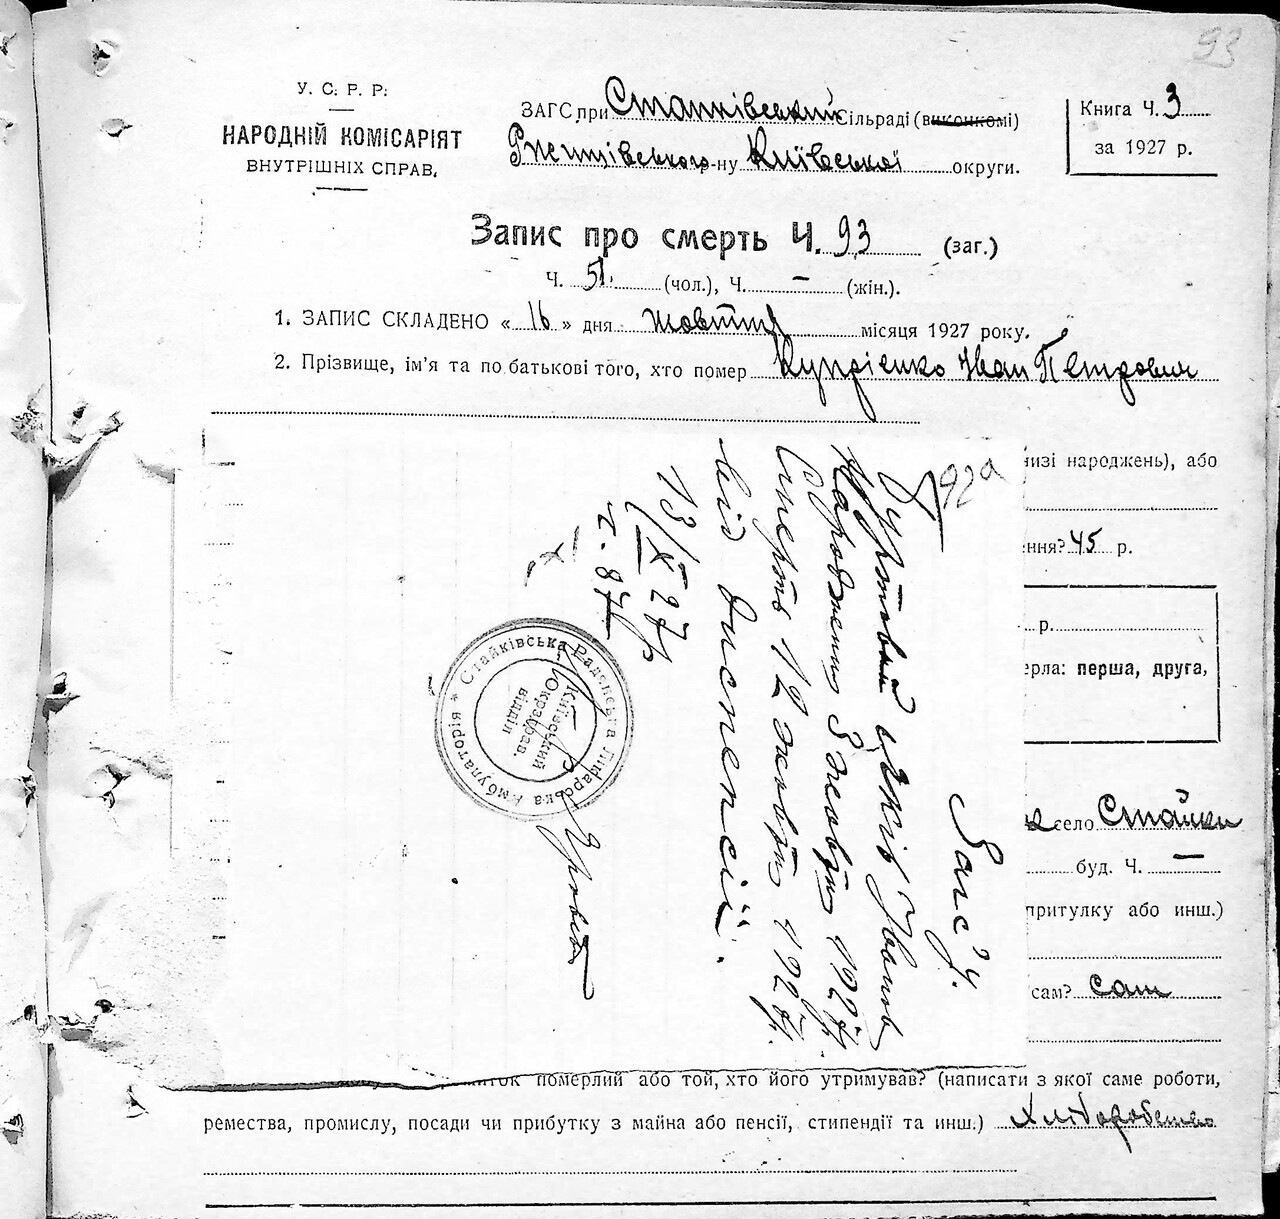 93
У. С. Р. Р.
НАРОДНІЙ КОМІСАРІЯТ
ВНУТРІШНІХ СПРАВ.
ЗАГС при Стайківський Сільраді (виконкомі)
Ржищівського р-ну Київської округи.
Книга Ч. 3
за 1927 р.
Запис про смерть Ч. 93 (заг.)
Ч. 51 (чол.), Ч. — (жін.).
1. ЗАПИС СКЛАДЕНО « 16 » дня жовтня місяця 1927 року.
2. Прізвище, ім'я та по батькові того, хто помер Купрієнко Іван Петрович
низі народжень), або
ння? 45 р.
р.
ерла: перша, друга,
село Стайки
буд. Ч. —
притулку або инш.)
сам? сам
ток померлий або той, хто його утримував? (написати з якої саме роботи,
ремества, промислу, посади чи прибутку з майна або пенсії, стипендії та инш.) Хліборобство
92а
Загс'у.
Іван
Народження 3 жовтн 1927 р.
Смерть 12 жовтн 1927 р.
від диспепсії.
13/X 27 р
ч. 87
Стайківська Радянська Лікарська Амбулаторія *
Київський
Окрздрав.
відділ